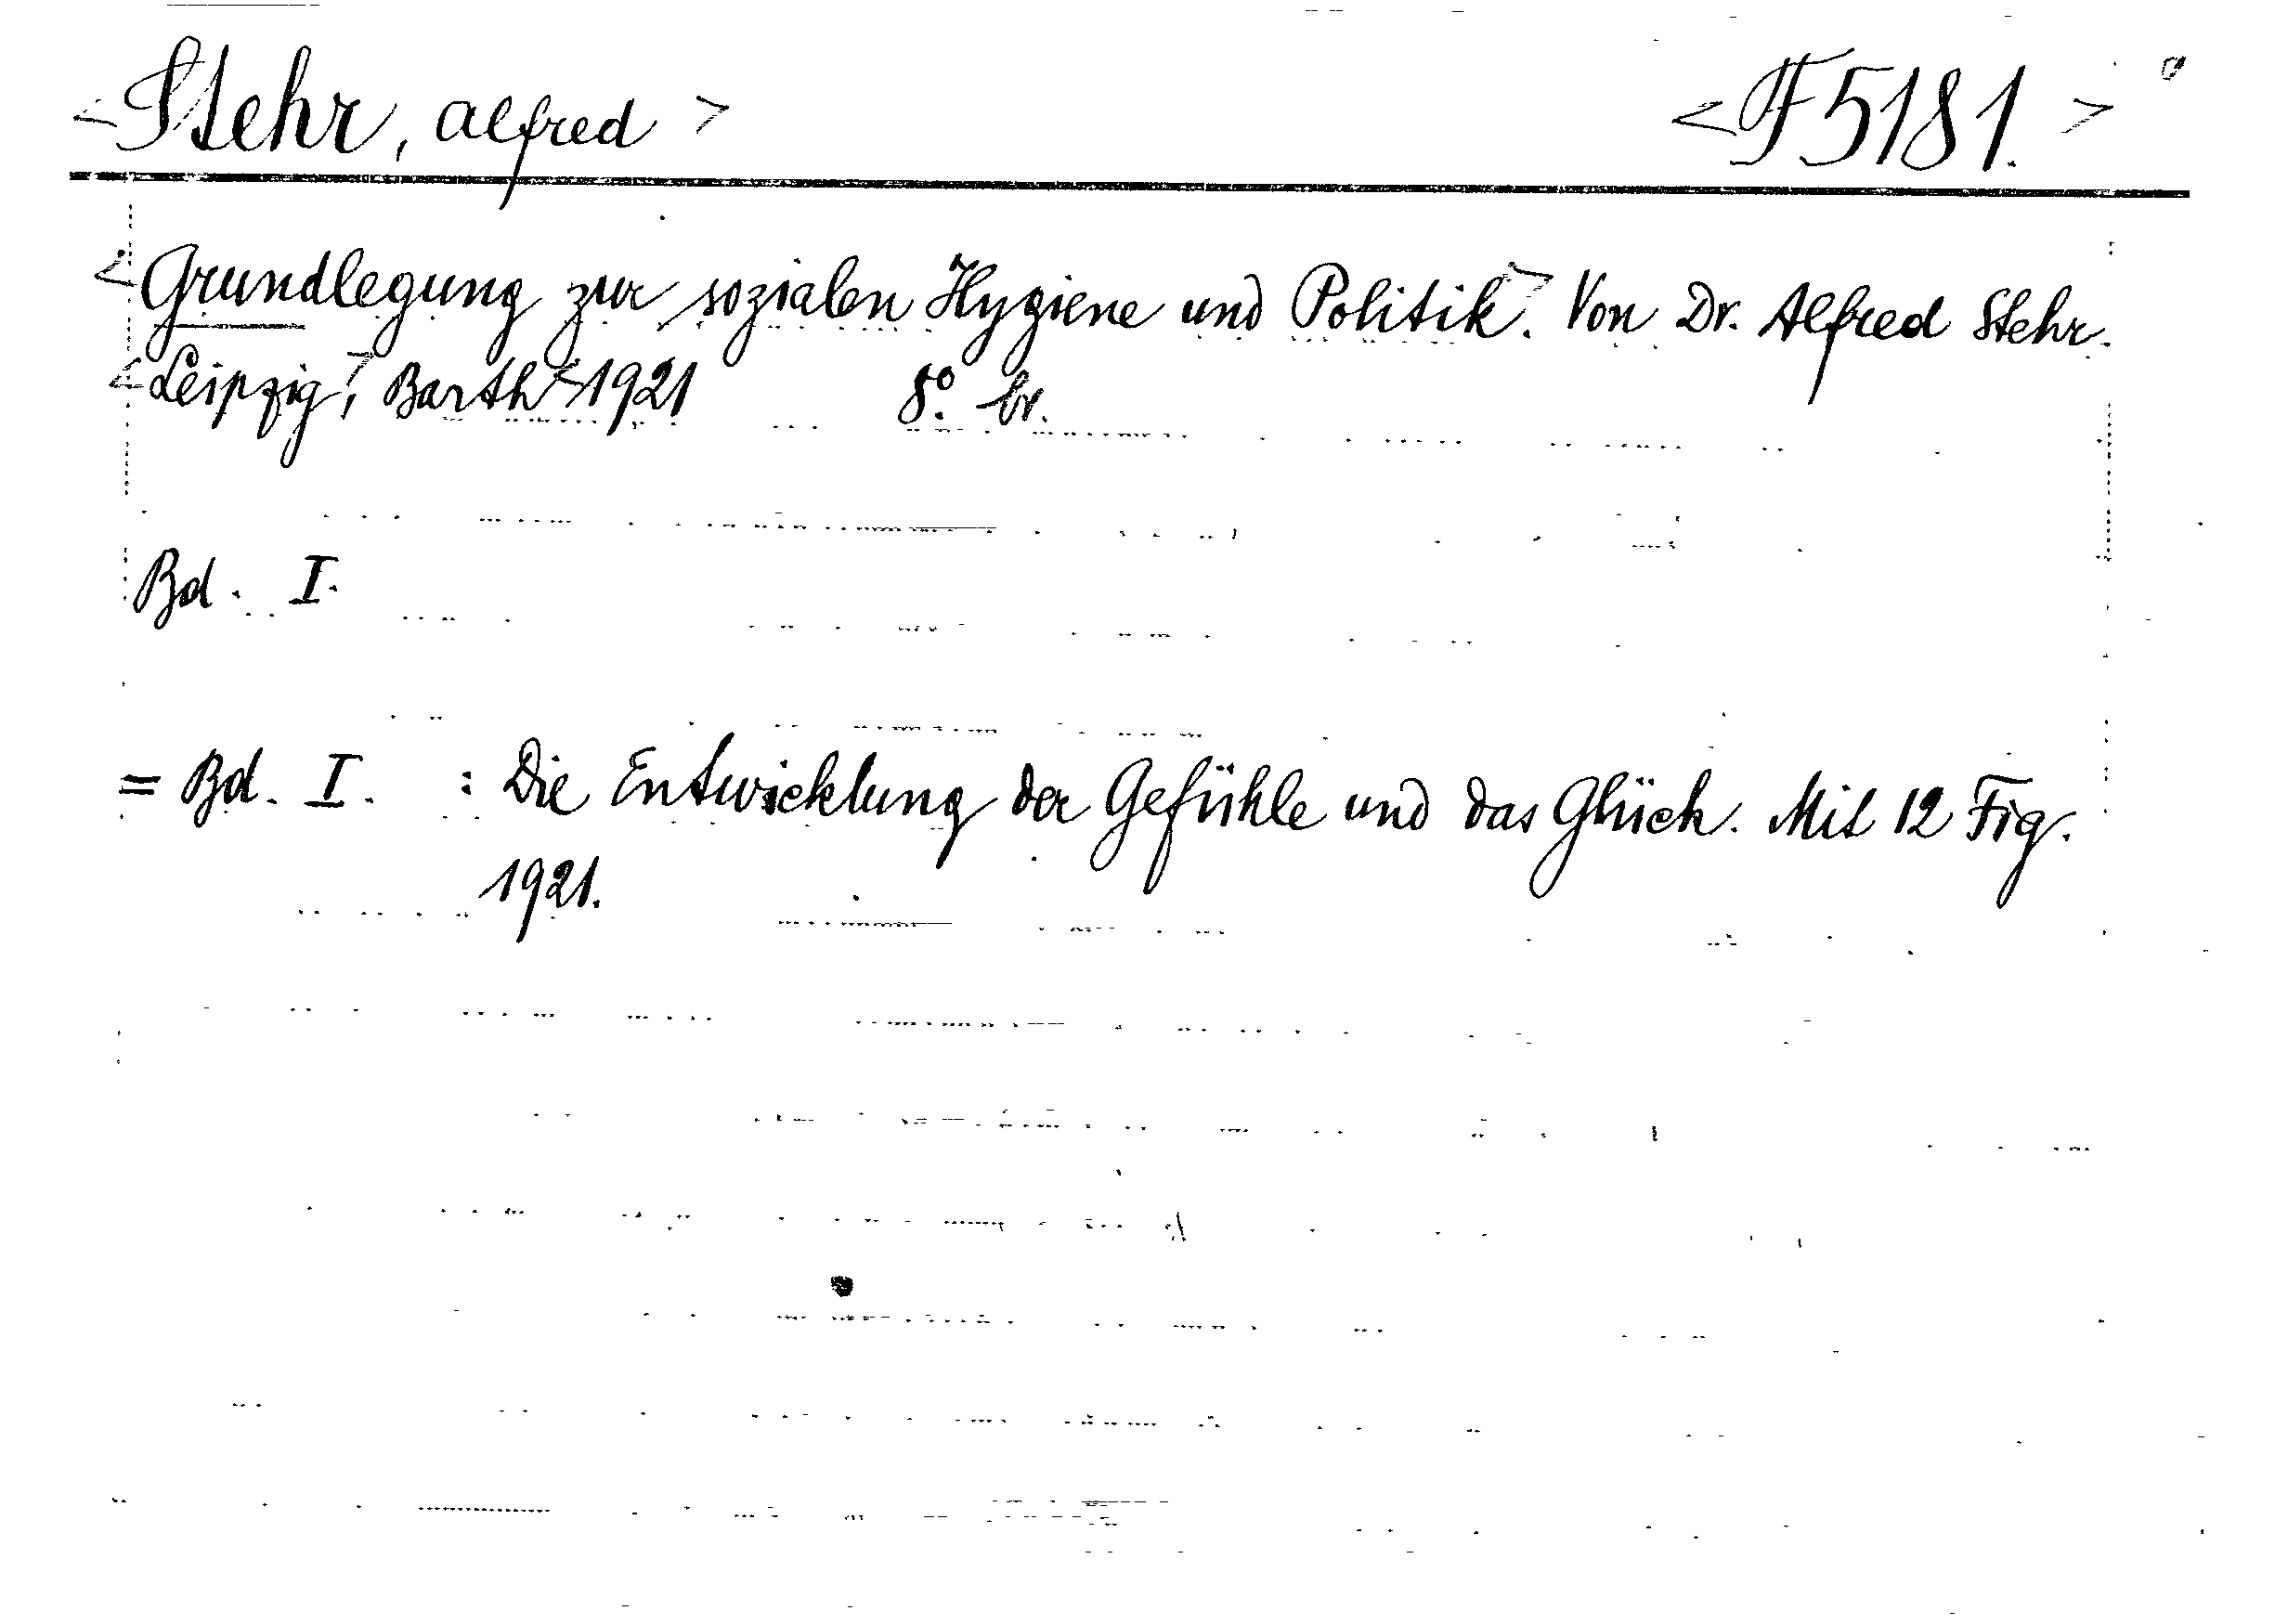 <Stehr, Alfred> <F 5181.>
<Grundlegung zur sozialen Hygiene und Politik.> Von Dr. Alfred Stehr.
<Leipzig>, Barth <1921 8º. br.
Bd. I.
= Bd. I. : Die Entwicklung der Gefühle und das Glück. Mit 12 Fig.
1921.